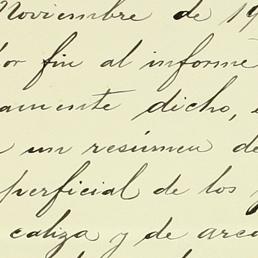 Noviembre de 19
or fin al informe
amente dicho, e
un resúmen de
perficial de los y
caliza y de arca